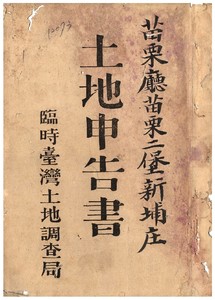 苗栗廳苗栗二堡新埔庄
土地申告書
臨時臺灣土地調查局